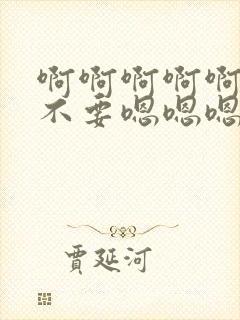 啊啊啊啊啊
不要嗯嗯嗯
贾延河